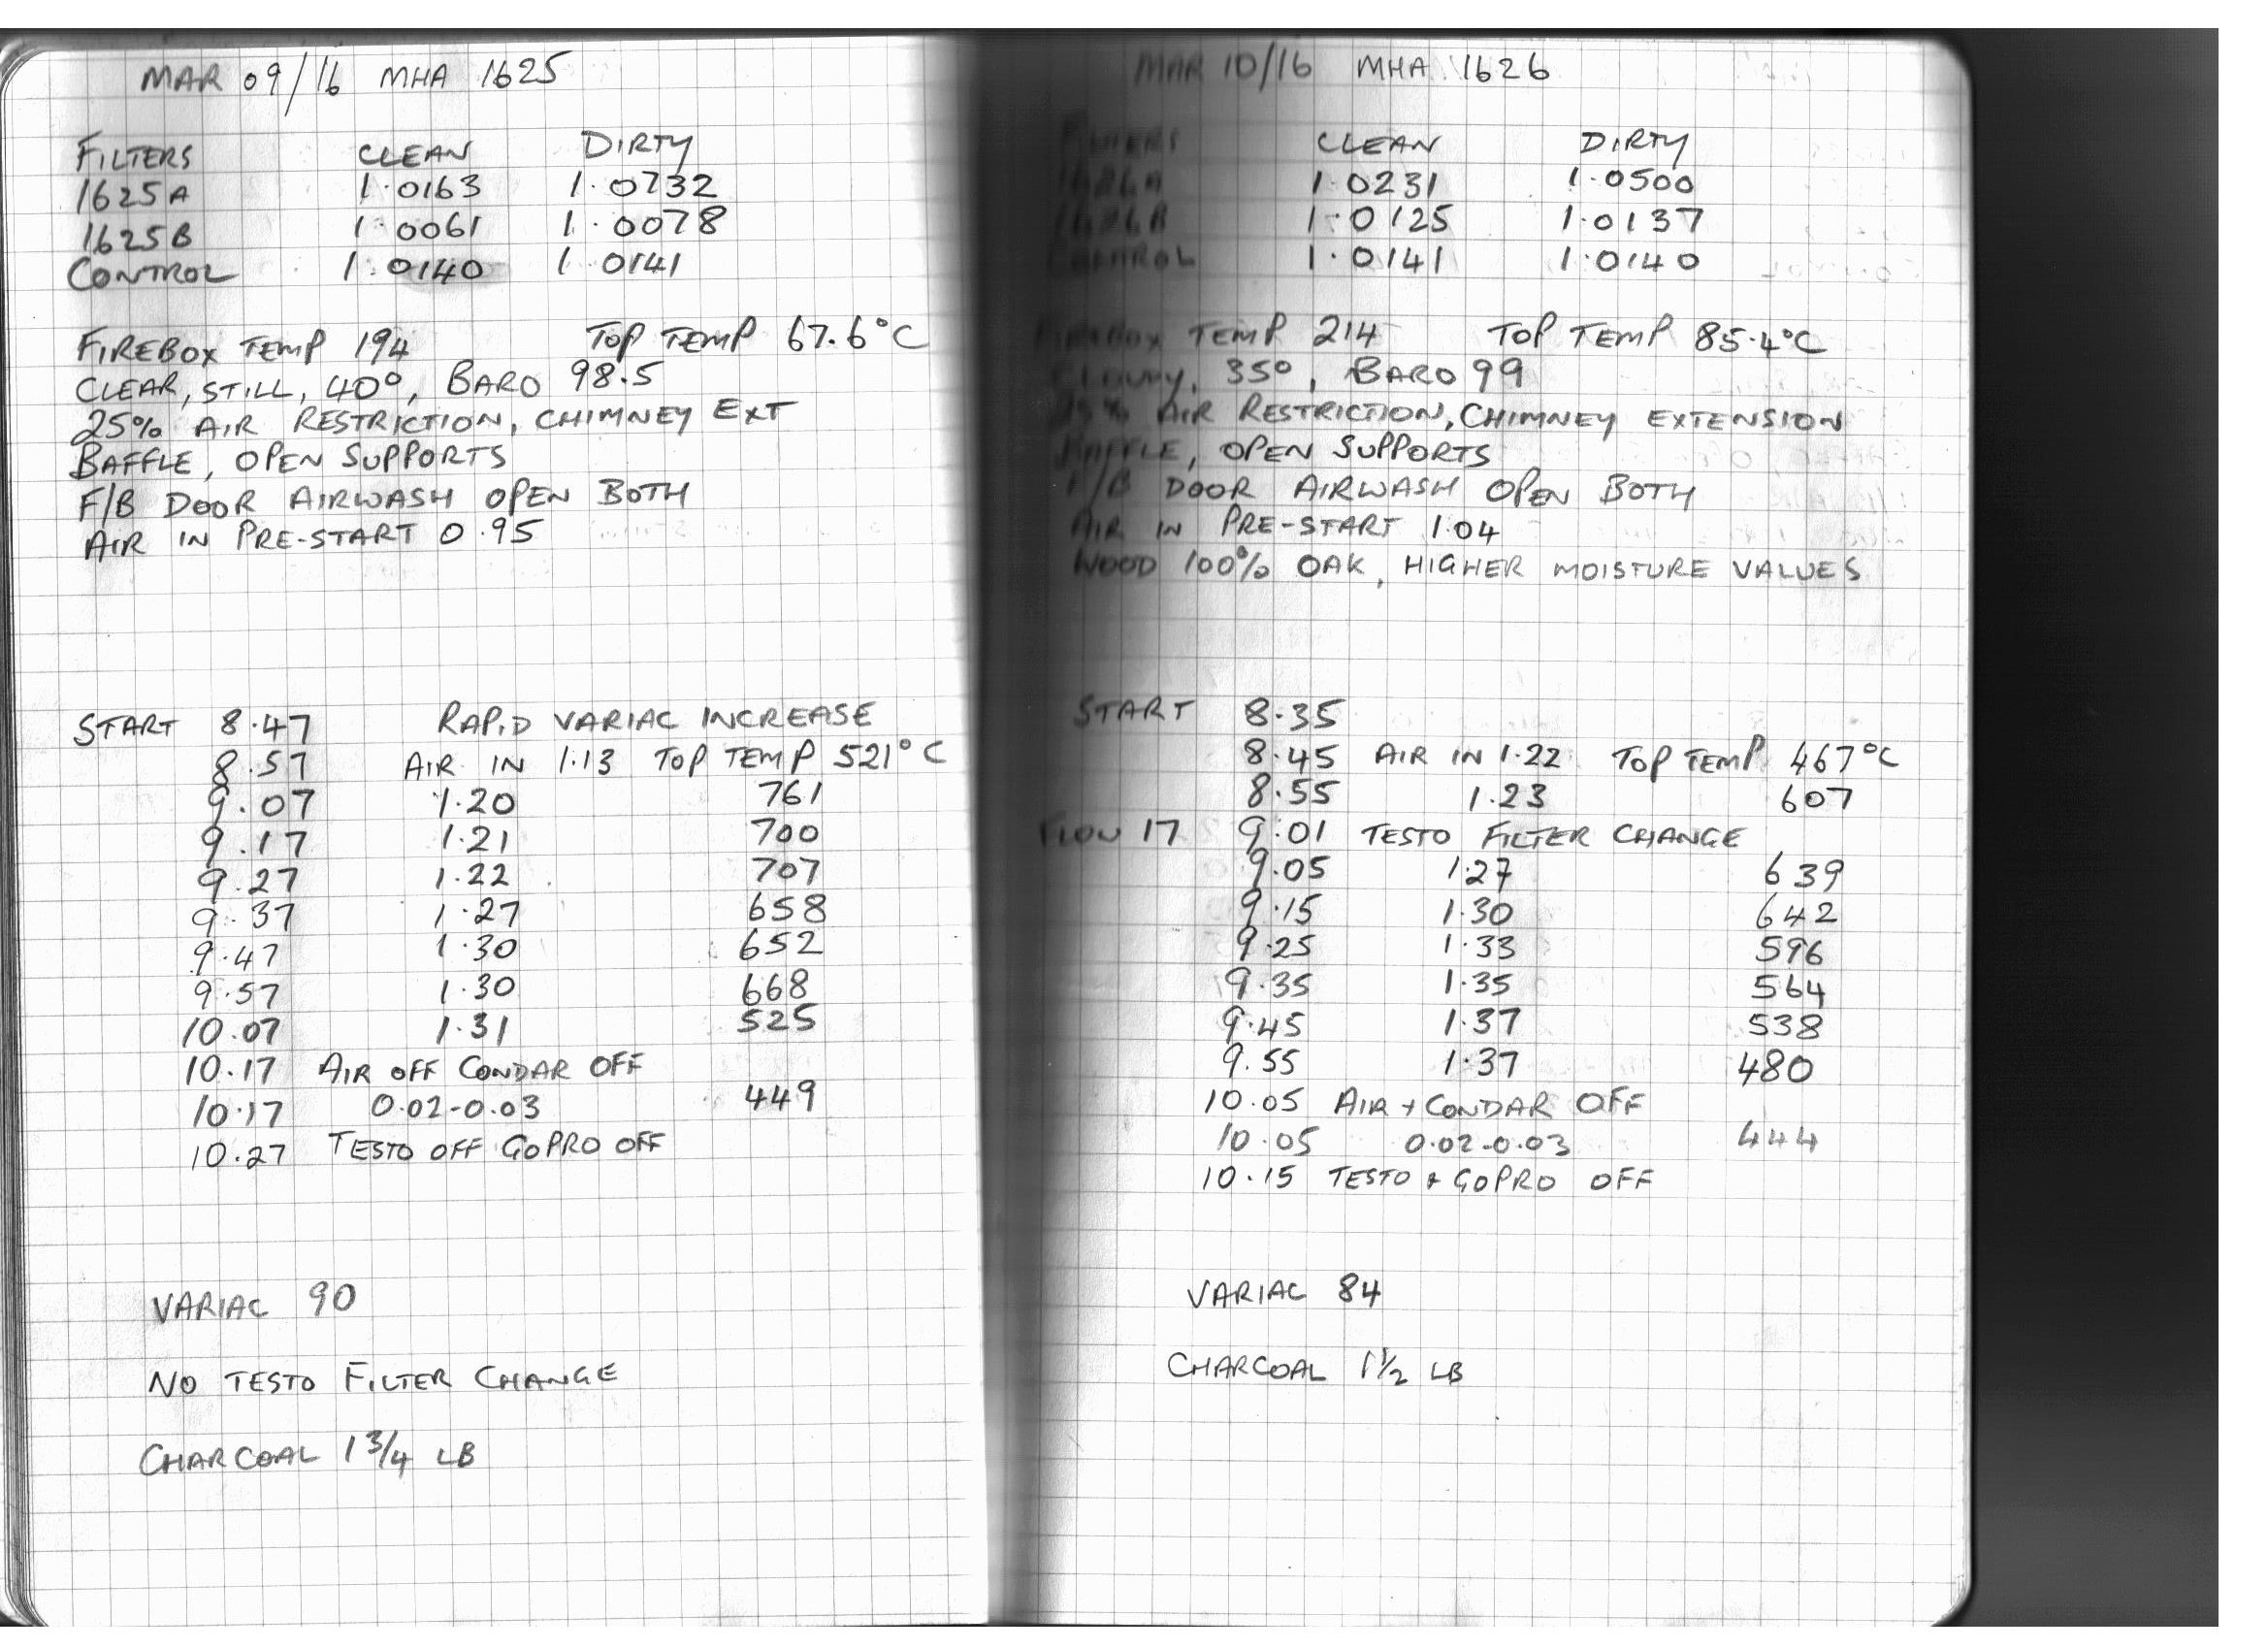 MAR 09/16 MHA 1625
FILTERS CLEAN DIRTY
1625A 1.0163 1.0732
1625B 1.0061 1.0078
CONTROL 1.0140 1.0141
FIREBOX TEMP 194 TOP TEMP 67.6°C
CLEAR, STILL, 40°, BARO 98.5
25% AIR RESTRICTION, CHIMNEY EXT
BAFFLE, OPEN SUPPORTS
F/B DOOR AIRWASH OPEN BOTH
AIR IN PRE-START 0.95
START 8.47 RAPID VARIAC INCREASE
8.57 AIR IN 1.13 TOP TEMP 521°C
9.07 1.20 761
9.17 1.21 700
9.27 1.22 707
9.37 1.27 658
9.47 1.30 652
9.57 1.30 668
10.07 1.31 525
10.17 AIR OFF CONDAR OFF
10.17 0.02-0.03 449
10.27 TESTO OFF GOPRO OFF
VARIAC 90
NO TESTO FILTER CHANGE
CHARCOAL 1 3/4 LB
MAR 10/16 MHA 1626
FILTERS CLEAN DIRTY
1626A 1.0231 1.0500
1626B 1.0125 1.0137
CONTROL 1.0141 1.0140
FIREBOX TEMP 214 TOP TEMP 85.4°C
CLOUDY, 35°, BARO 99
25% AIR RESTRICTION, CHIMNEY EXTENSION
BAFFLE, OPEN SUPPORTS
F/B DOOR AIRWASH OPEN BOTH
AIR IN PRE-START 1.04
WOOD 100% OAK, HIGHER MOISTURE VALUES
START 8.35
8.45 AIR IN 1.22 TOP TEMP 467°C
8.55 1.23 607
FLOW 17 9.01 TESTO FILTER CHANGE
9.05 1.27 639
9.15 1.30 642
9.25 1.33 596
9.35 1.35 564
9.45 1.37 538
9.55 1.37 480
10.05 AIR + CONDAR OFF
10.05 0.02-0.03 444
10.15 TESTO + GOPRO OFF
VARIAC 84
CHARCOAL 1 1/2 LB